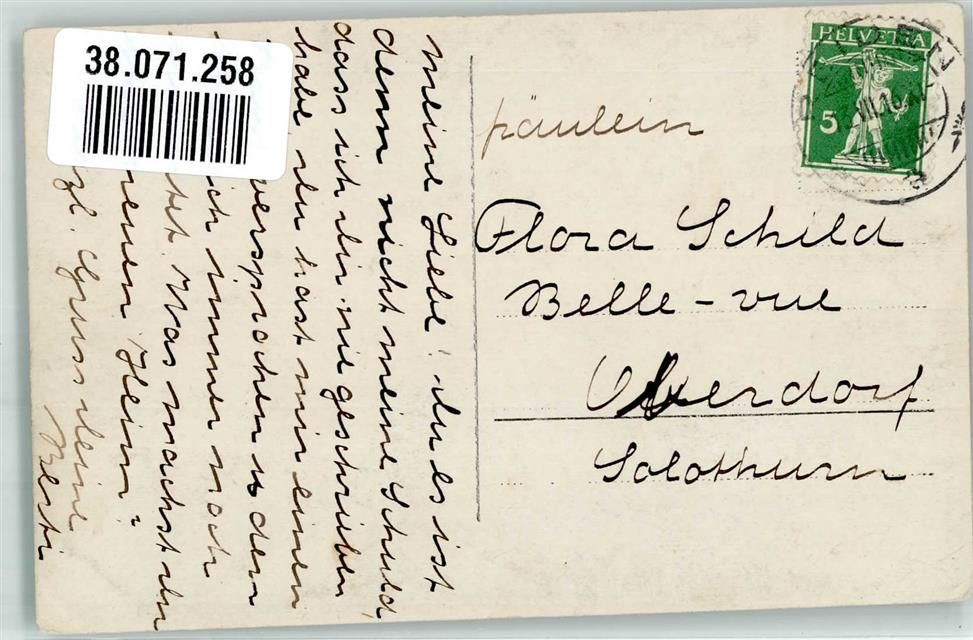 38.071.258
HELVETIA
5
Meine Liebe! du es ist
denn nicht meine Schuld,
dass ich dir nie geschrieben
habe, du hast mir einen
versprochen u den
ich immer noch
Was machst du
Hein?
Gruss deine
Berti
päulein
Flora Schild
Belle-vue
Oberdorf
Solothurn